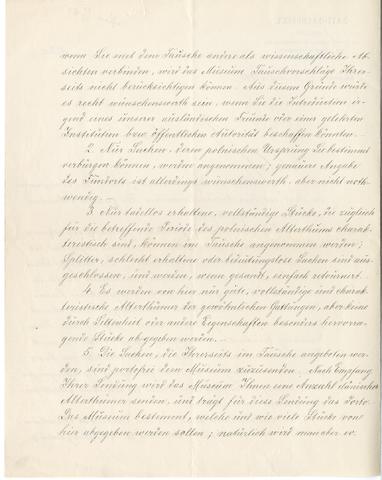 wenn Sie mit dem Tausche andere als wissenschaftliche Ab-
sichten verbinden, wird das Museum Tauschvorschläge Ihrer-
seits nicht berücksichtigen können. Aus diesem Grunde würde
es recht wünschenswerth sein, wenn Sie die Introduction ir-
gend eines unserer ausländischen Freunde oder einer gelehrten
Institution bzw. öffentlichen Autorität beschaffen könnten. —
2. Nur Sachen, deren polnischen Ursprung Sie bestimmt
verbürgen können, werden angenommen; genauere Angabe
des Fundorts ist allerdings wünschenswerth, aber nicht noth-
wendig. —
3. Nur tadellos erhaltene, vollständige Stücke, die zugleich
für die betreffende Periode des polnischen Alterthums charak-
teristisch sind, können im Tausche angenommen werden;
Splitter, schlecht erhaltene oder bedeutungslose Sachen sind aus-
geschlossen, und werden, wenn gesant, einfach retournirt. —
4. Es werden von hier nur gute, vollständige und charak-
teristische Alterthümer der gewöhnlichen Gattungen, aber keine
durch Seltenheit oder andere Eigenschaften besonders hervorra-
gende Stücke abgegeben werden. —
5. Die Sachen, die Ihrerseits im Tausche angeboten wer-
den, sind portofrei dem Museum zuzusenden. Nach Empfang
Ihrer Sendung wird das Museum Ihnen eine Anzahl dänischer
Alterthümer senden, und trägt für diese Sendung das Porto.
Das Museum bestimmt, welche und wie viele Stücke von
hier abgegeben werden sollen; natürlich wird man aber ev.